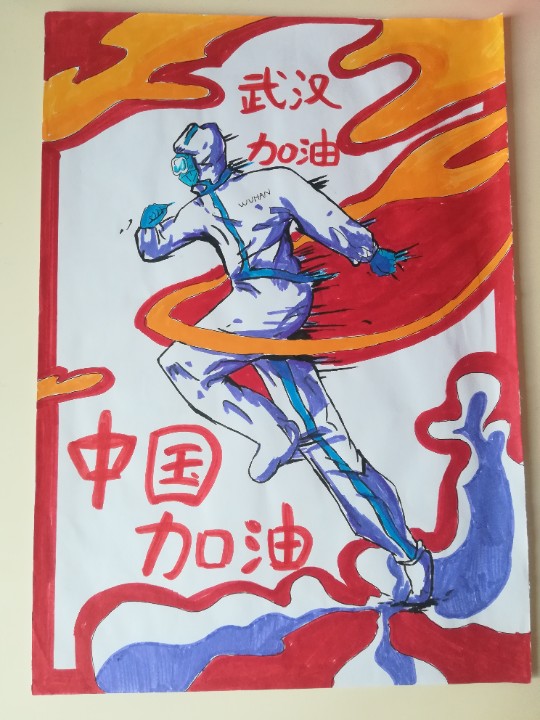 武汉
加油
WUHAN
中国
加油